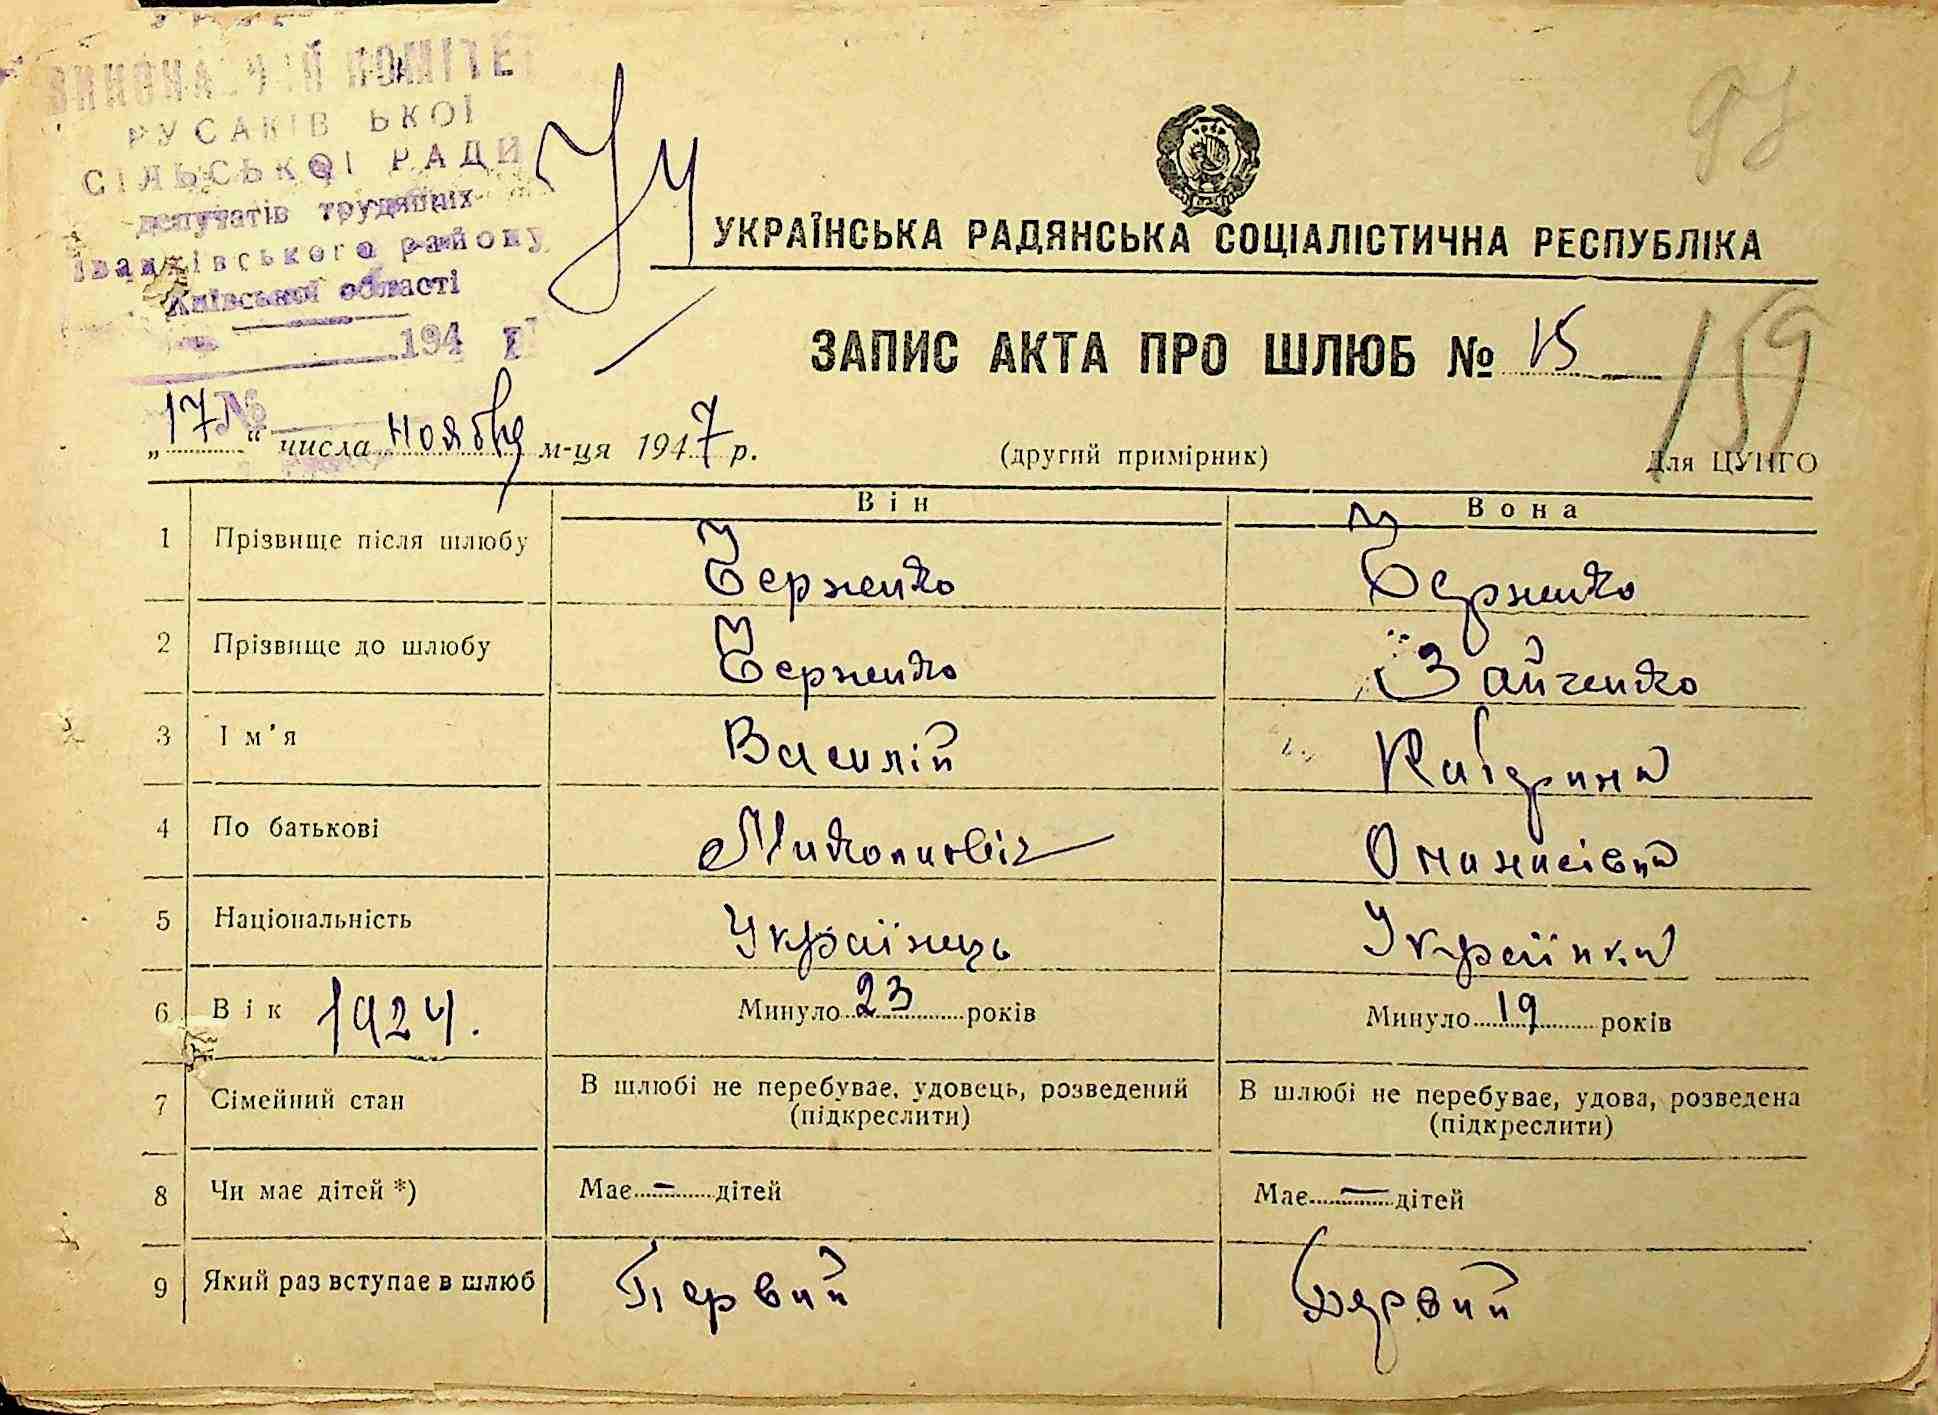 ВИКОНАВЧИЙ КОМІТЕТ
РУСАКІВСЬКОЇ
СІЛЬСЬКОЇ РАДИ
депутатів трудящих
Іванківського району
Київської області
194 р.
№
УКРАЇНСЬКА РАДЯНСЬКА СОЦІАЛІСТИЧНА РЕСПУБЛІКА
ЗАПИС АКТА ПРО ШЛЮБ № 15
159
„17“ числа ноября м-ця 1947 р.
(другий примірник)
Для ЦУНГО
Він
Вона
1 Прізвище після шлюбу
2 Прізвище до шлюбу Зайченко
3 Ім'я Василій Катерина
4 По батькові Миколаєвіч Опанасівна
5 Національність Українець Українка
6 Вік 1924. Минуло 23 років Минуло 19 років
7 Сімейний стан В шлюбі не перебуває, удовець, розведений (підкреслити) В шлюбі не перебуває, удова, розведена (підкреслити)
8 Чи має дітей *) Має – дітей Має – дітей
9 Який раз вступає в шлюб Первий Первий